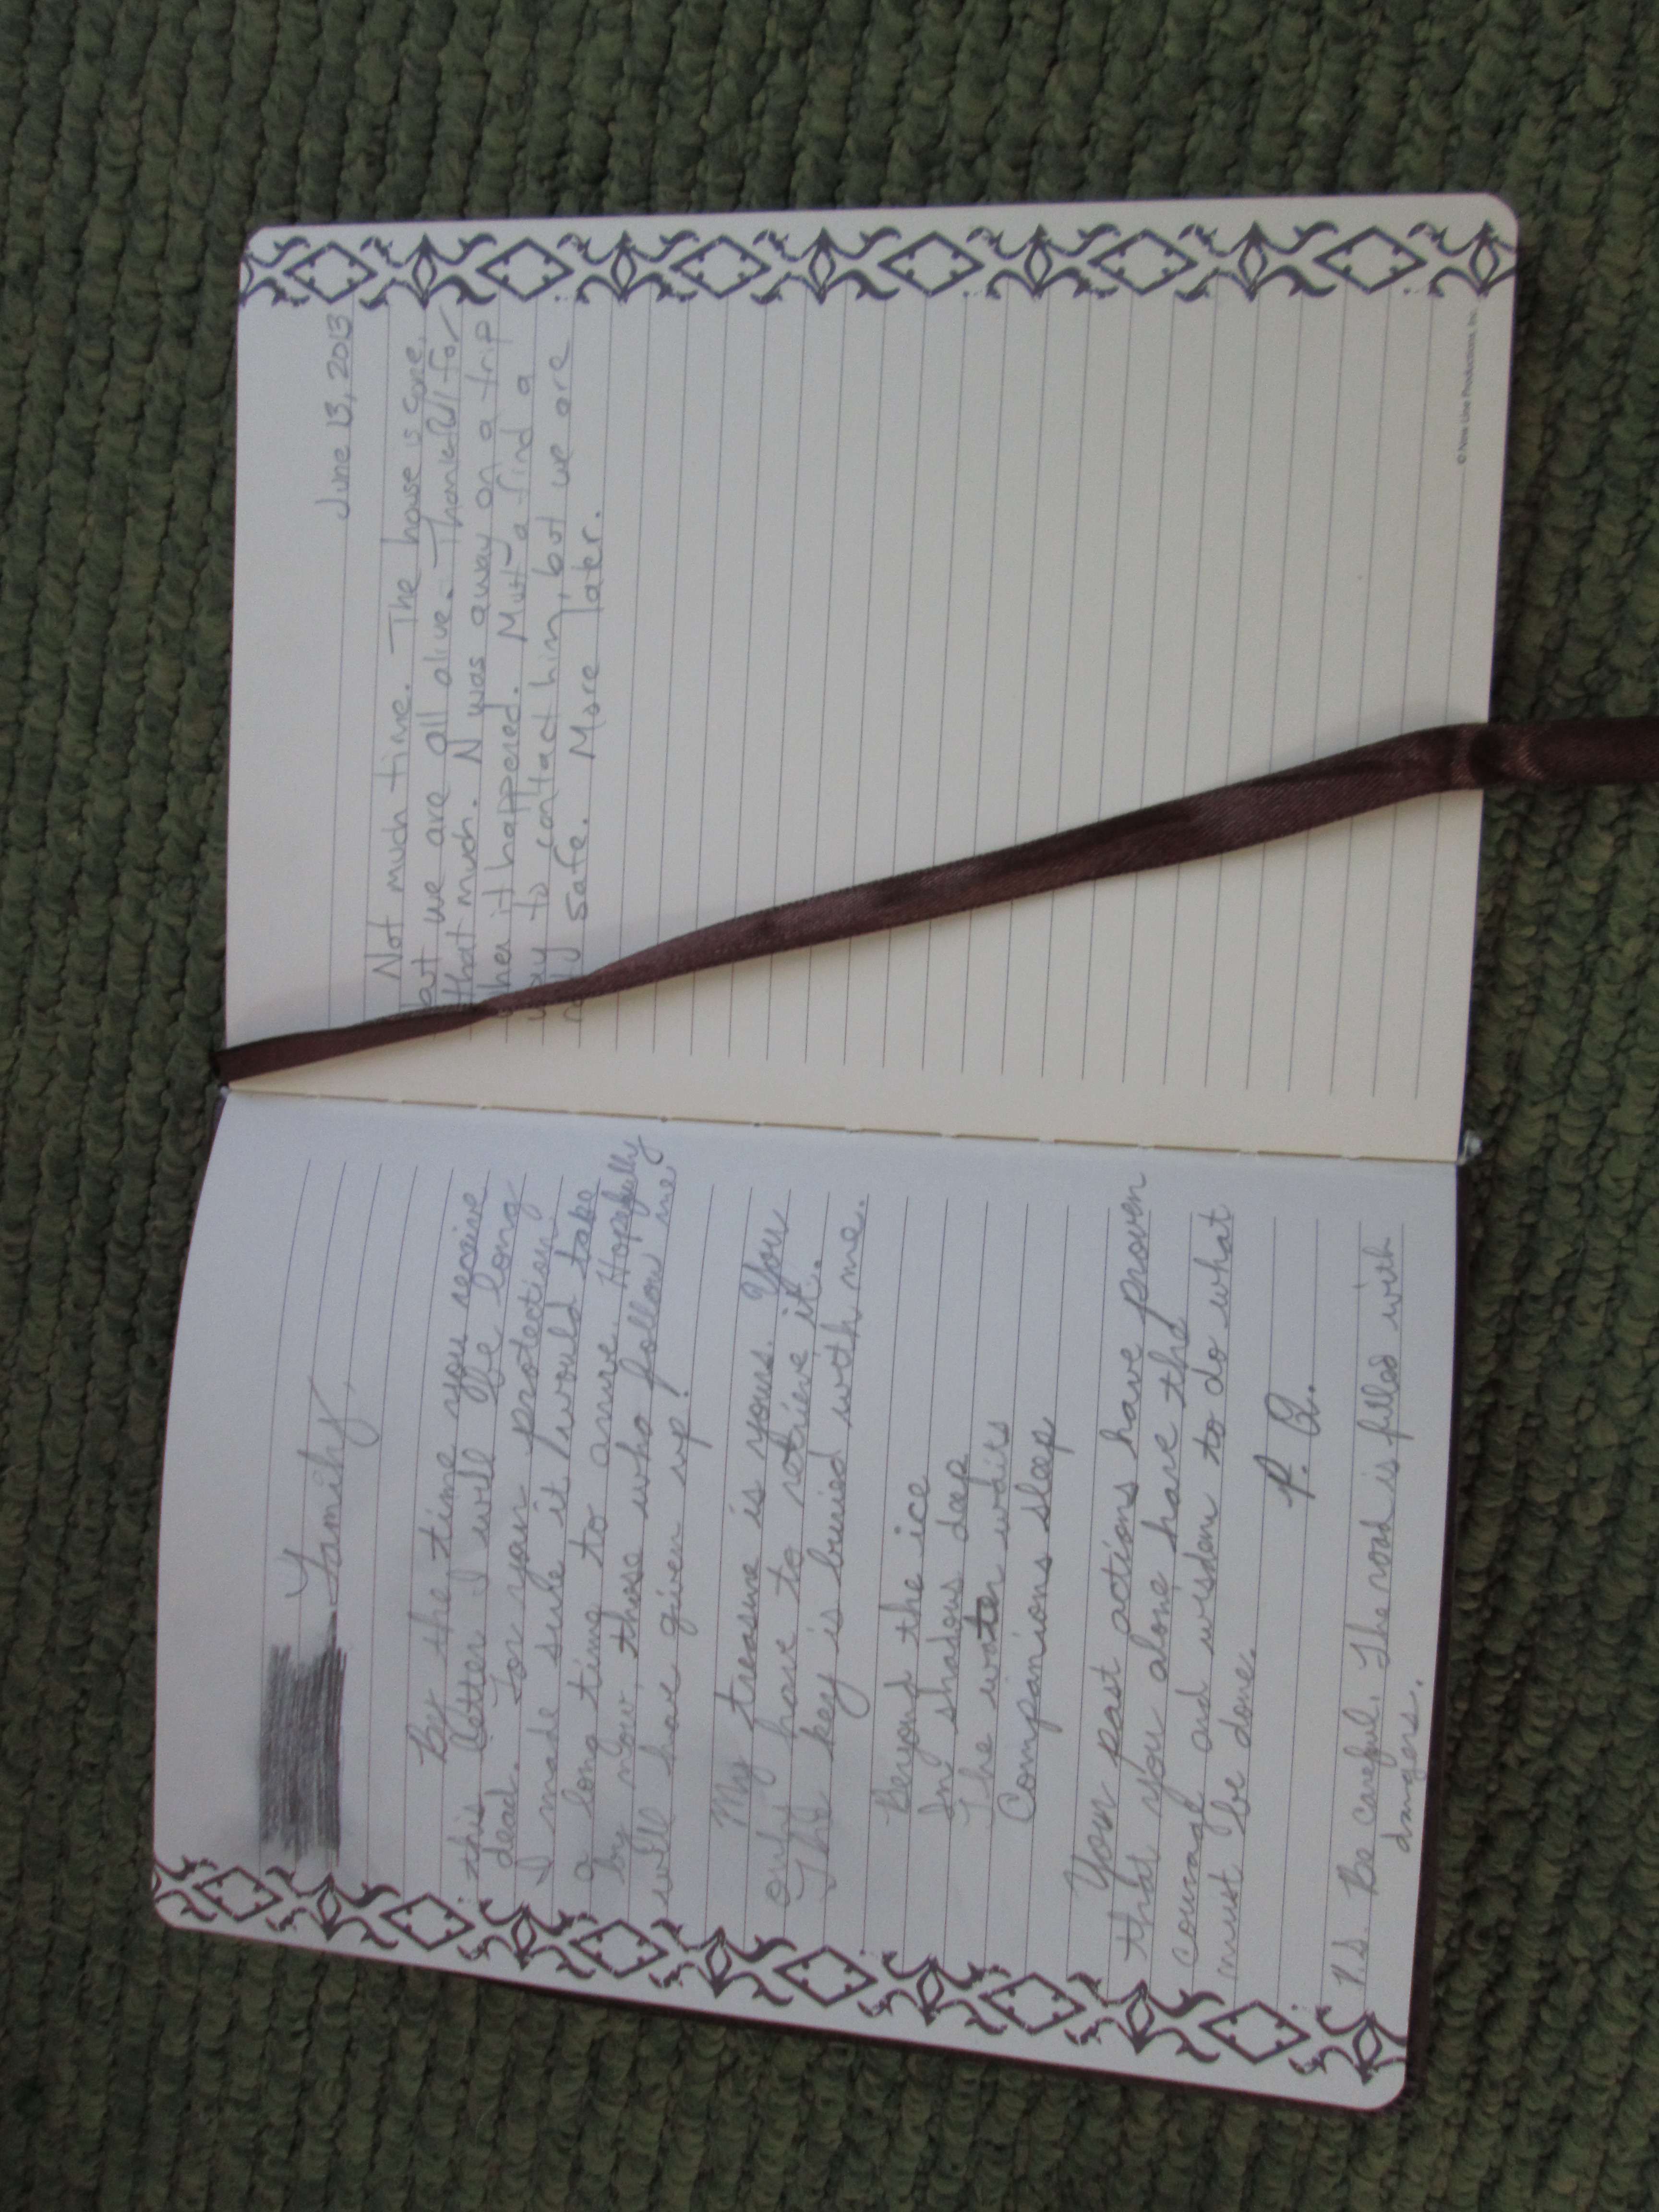 Family,
By the time you receive
this letter I will be long
dead. For your protection
I made sure it would take
a long time to arrive. Hopefully
by now, those who follow me
will have given up!
My treasure is yours. You
only have to retrieve it.
The key is buried with me.
Beyond the ice
In shadows deep
The water waits
Companions sleep
Your past actions have proven
that you alone have the
courage and wisdom to do what
must be done.
P.S. Be careful. The road is filled with
dangers.
June 13, 2013
Not much time. The house is gone,
but we are all alive. Thankful for
that much. N was away on a trip
when it happened. Must find a
way to contact him, but we are
safe. More later.
© New Line Productions, Inc.